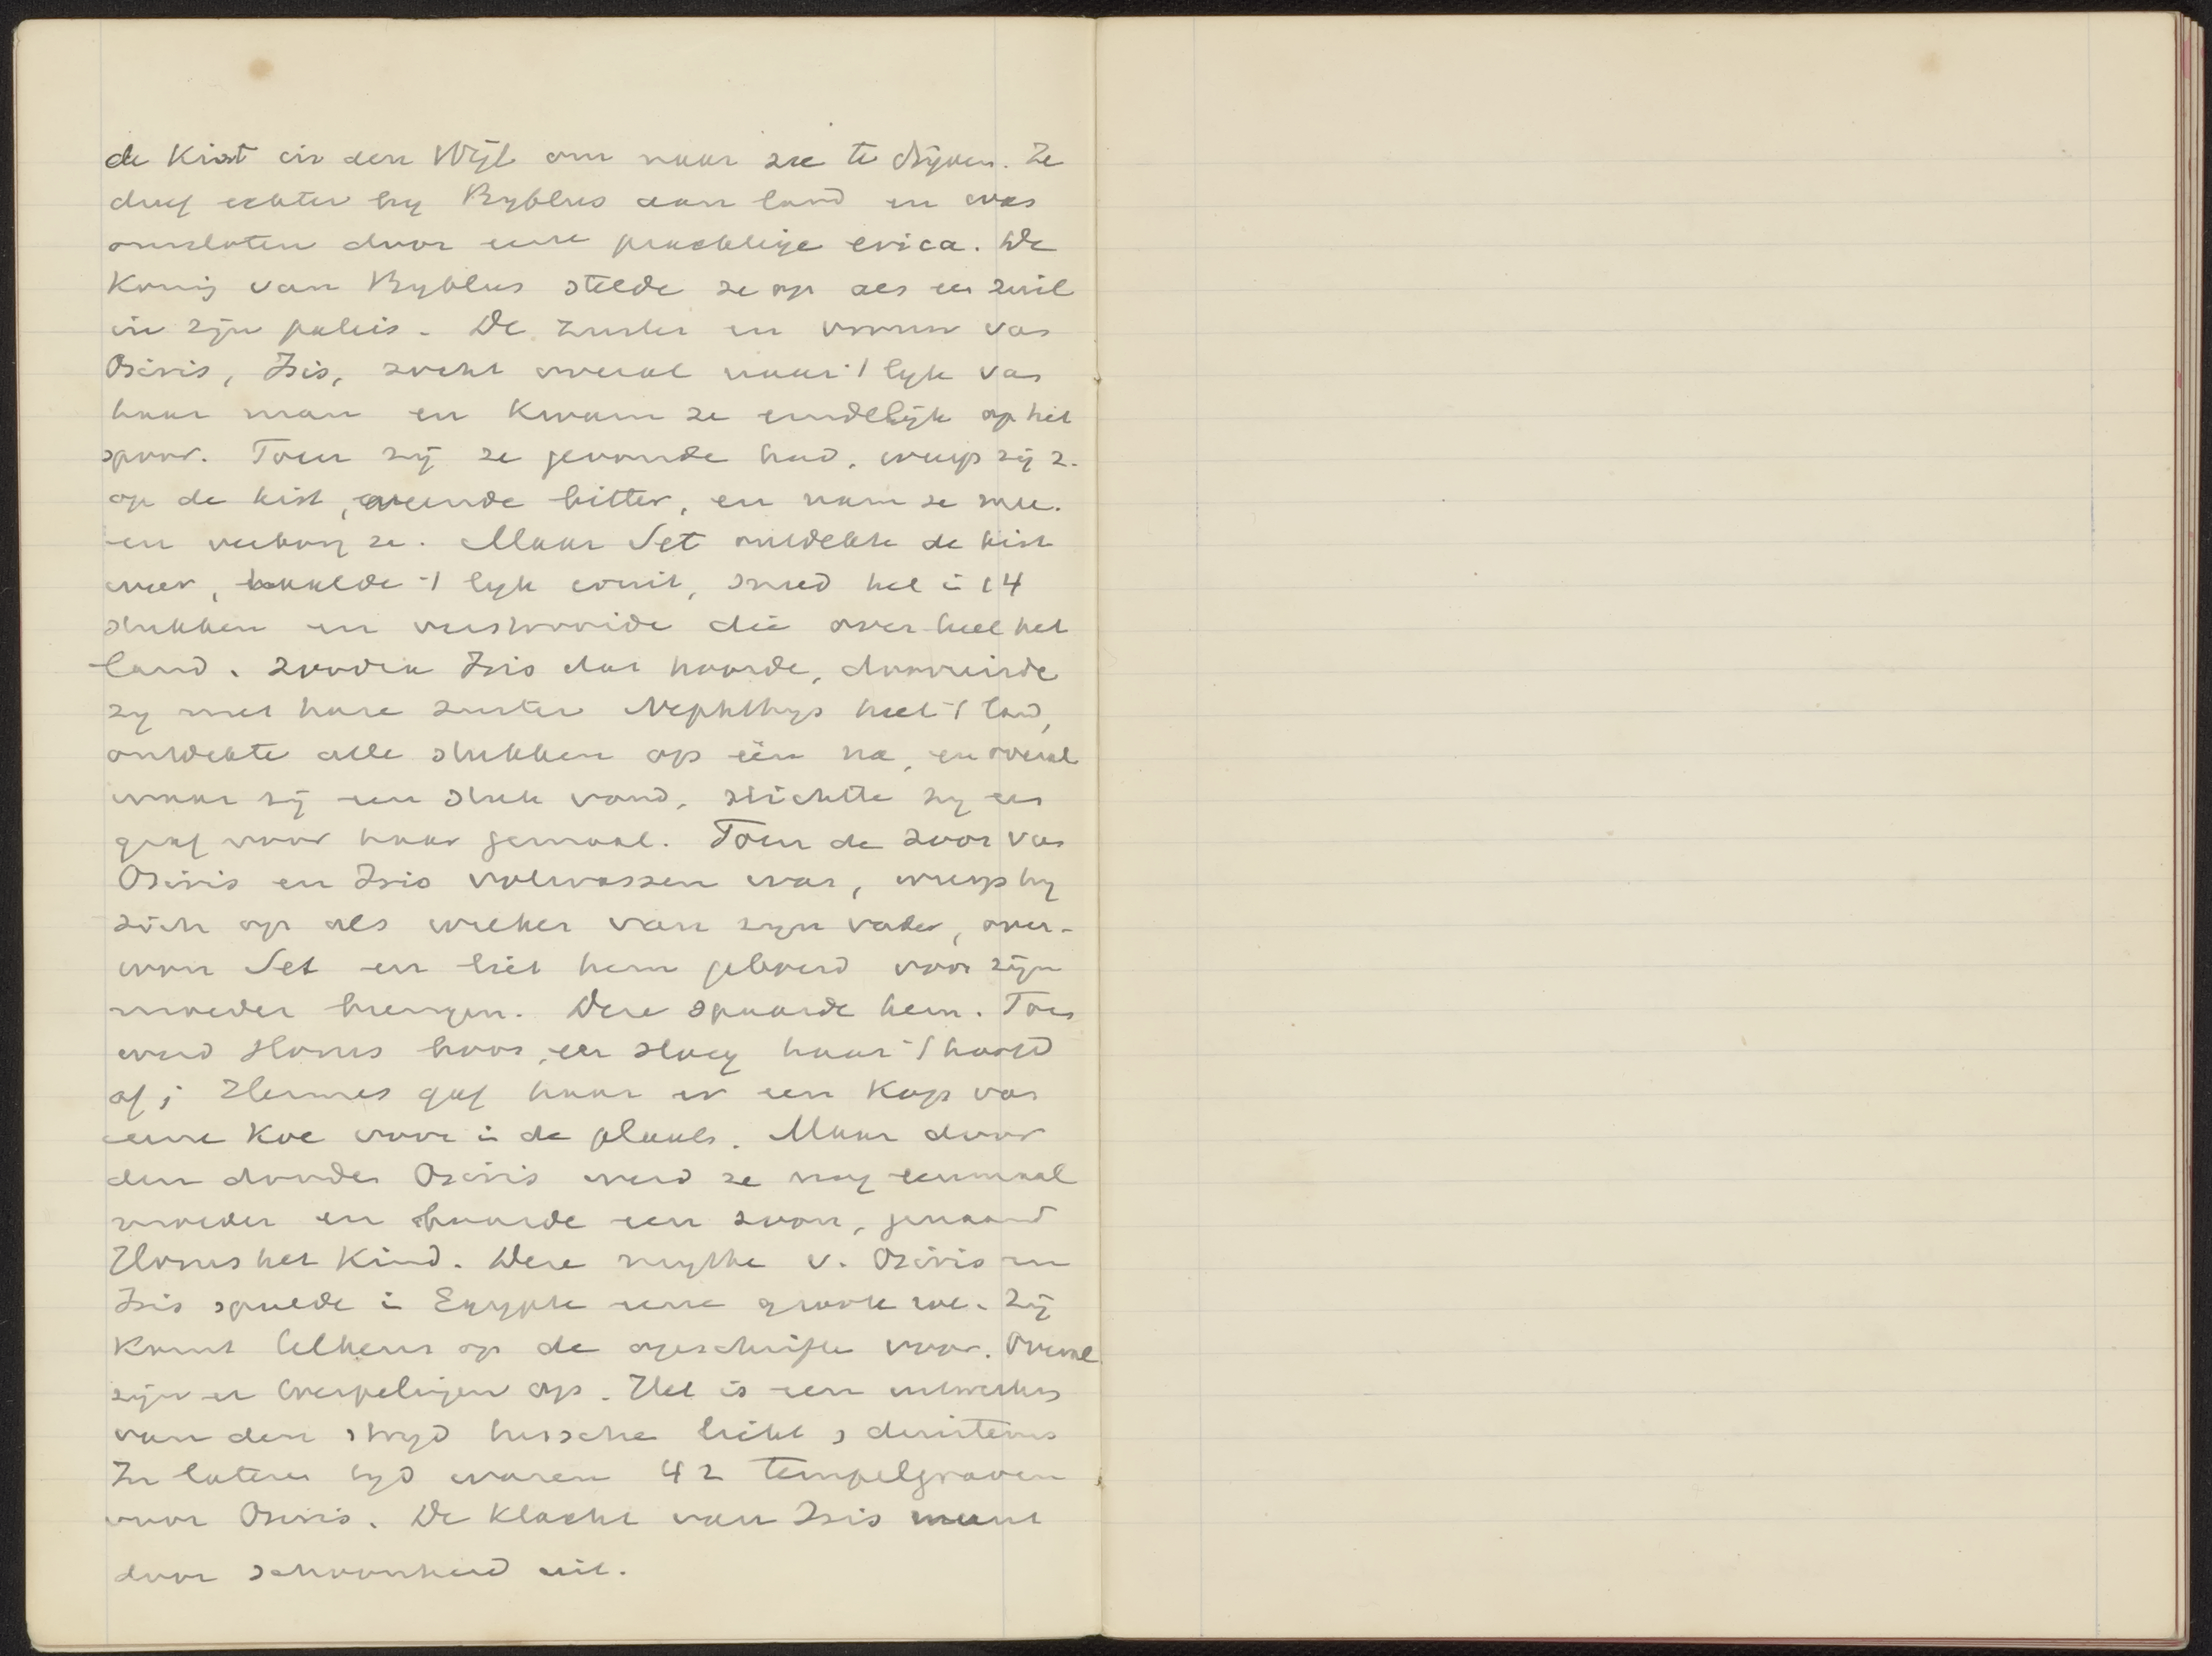 de Kist in den Nijl om naar zee te drijven. Ze
dreef echter bij Byblus aan land en was
omsloten door eene prachtige erica. De
Koning van Byblus stelde ze op als een zuil
in zijn paleis. De zuster en vrouw van
Osiris, Isis, zocht overal naar 't lijk van
haar man en kwam ze eindelijk op het
spoor. Toen zij ze gevonden had, wierp zij z.
op de kist, weende bitter, en nam ze mee.
en verborg ze. Maar Set ontdekte de kist
weer, haalde 't lijk eruit, sneed het in 14
stukken en verstrooide die over heel het
land. Zoodra Isis dat hoorde, doorreisde
zij met hare zuster Nephthys heel 't land,
ontdekte alle stukken op één na, en overal
waar zij een stuk vond, stichtte zij een
graf voor haar gemaal. Toen de zoon van
Osiris en Isis volwassen was, wierp hij
zich op als wreker van zijn vader, over-
won Set en liet hem geboeid voor zijn
moeder brengen. Deze spaarde hem. Toen
werd Horus boos, en sloeg haar 't hoofd
af; Hermes gaf haar er een Kop van
eene Koe voor in de plaats. Maar door
den dooden Osiris werd ze nog eenmaal
moeder en baarde een zoon, genaamd
Horus het Kind. Deze mythe v. Osiris en
Isis speelde in Egypte eene groote rol. Zij
komt telkens op de opschriften voor. Overal
zijn er toespelingen op. Het is een uitwerking
van den strijd tussche licht & duisternis
In lateren tijd waren 42 tempelgraven
voor Osiris. De Klacht van Isis munt
door schoonheid uit.